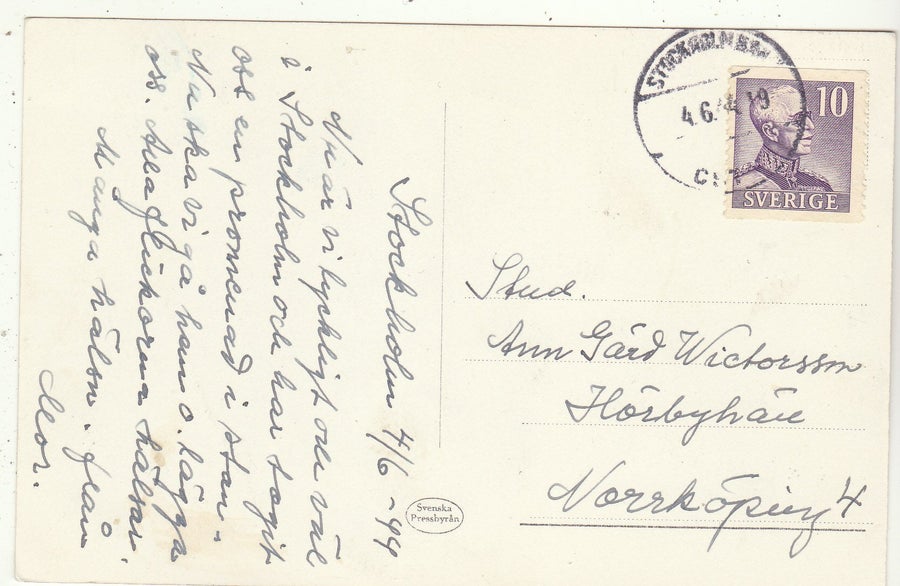 Stockholm 4/6-44
Nu är vi lyckligt och väl
i Stockholm och har tagit
oss en promenad i stan.
Nu ska vi gå hem o. lägga
oss. Alla flickorna hälsar.
Många hälsn. från
Mor.
Svenska
Pressbyrån
STOCKHOLM
4.6.44 19
10
SVERIGE
Stud.
Ann Gärd Wictorsson
Norrköping 4